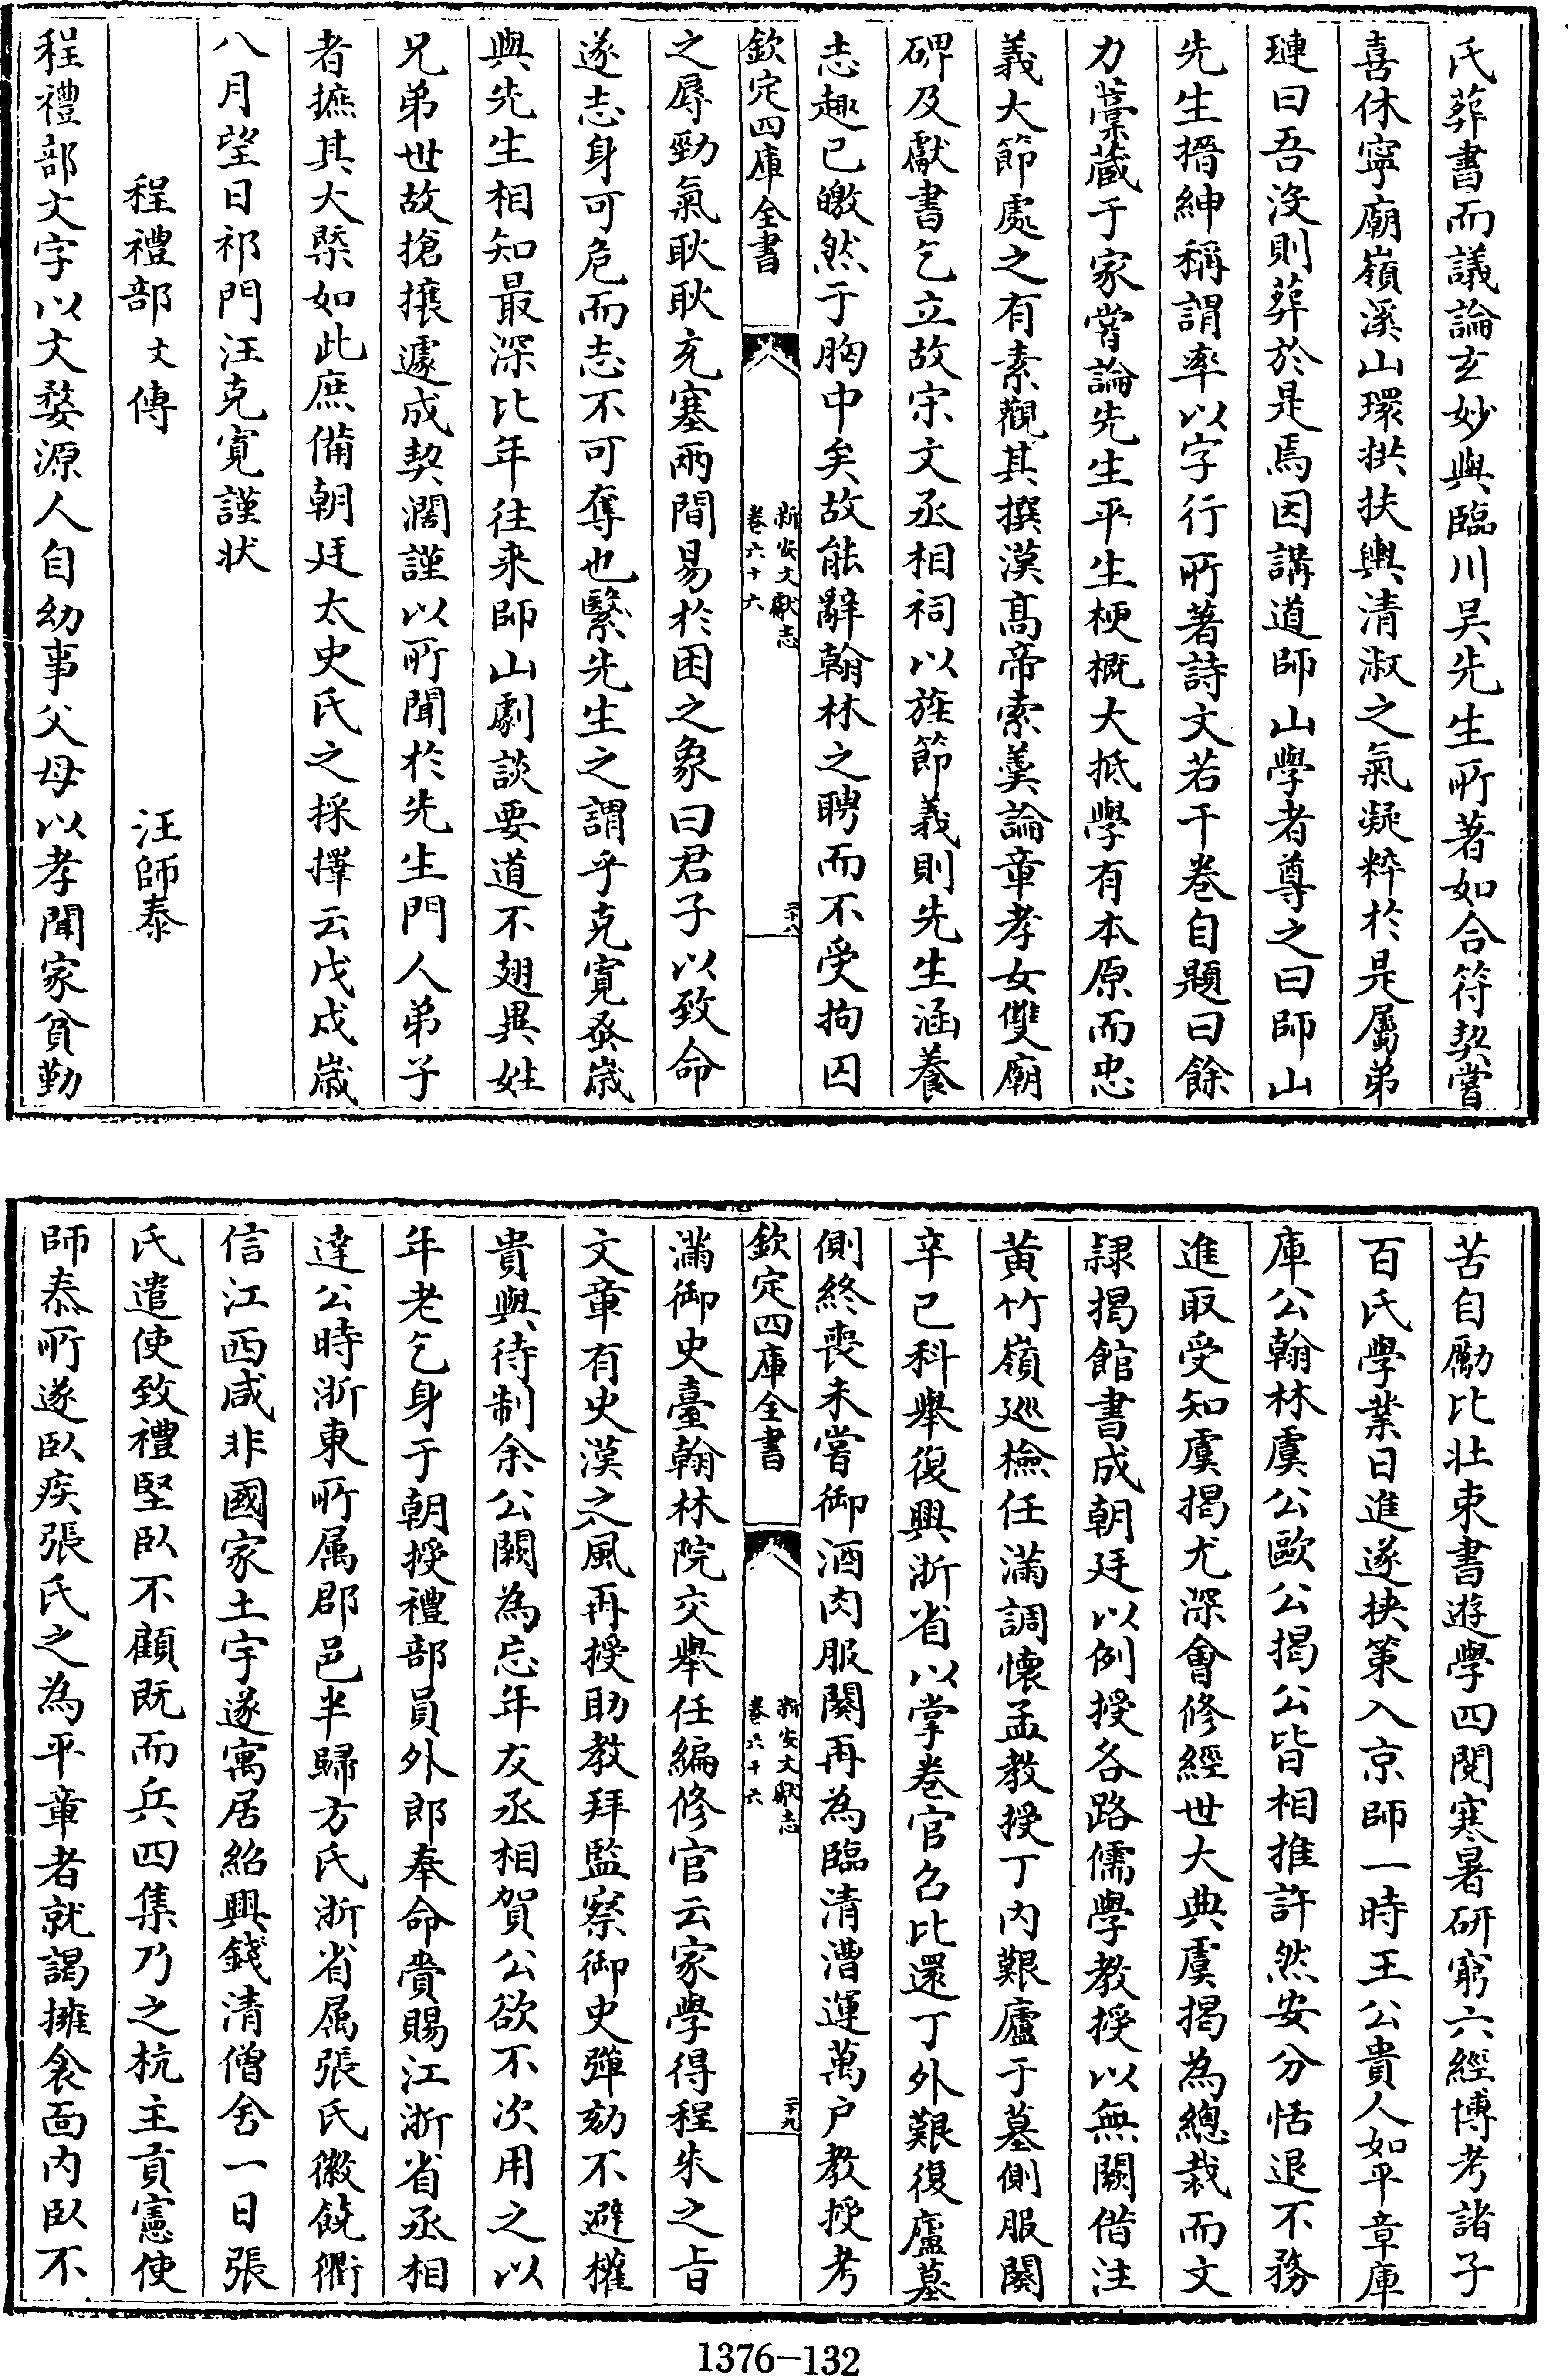 氏葬書而議論玄妙與臨川吴先生所著如合符契嘗
喜休寧廟嶺溪山環拱扶輿清淑之氣凝粹於是屬弟
璉曰吾沒則葬於是焉因講道師山學者尊之曰師山
先生搢紳稱謂率以字行所著詩文若干卷自題曰餘
力藁藏于家嘗論先生平生梗概大抵學有本原而忠
義大節處之有素觀其撰漢髙帝索羹論章孝女雙廟
碑及獻書乞立故宋文丞相祠以旌節義則先生涵養
志趣已皦然于胸中矣故能辭翰林之聘而不受拘囚
欽定四庫全書
新安文獻志
卷六十六
二十八
之辱勁氣耿耿充塞兩間易於困之象曰君子以致命
遂志身可危而志不可奪也繄先生之謂乎克寛蚤嵗
與先生相知最深比年往来師山劇談要道不翅異姓
兄弟世故搶攘遽成契濶謹以所聞於先生門人弟子
者摭其大槩如此庶備朝廷太史氏之採擇云戊戌嵗
八月望日祁門汪克寛謹狀
程禮部文傳
汪師泰
程禮部文字以文婺源人自幼事父母以孝聞家貧勤
苦自勵比壮束書遊學四閱寒暑研窮六經博考諸子
百氏學業日進遂挟策入京師一時王公貴人如平章庫
庫公翰林虞公歐公揭公皆相推許然安分恬退不務
進取受知虞揭尤深會修經世大典虞揭為總裁而文
𨽻揭館書成朝廷以例授各路儒學教授以無闕借注
黄竹嶺廵檢任滿調懷孟教授丁内艱廬于墓側服闋
辛巳科舉復興浙省以掌卷官召比還丁外艱復廬墓
側終喪未嘗御酒肉服闋再為臨清漕運萬户教授考
欽定四庫全書
新安文獻志
卷六十六
二十九
滿御史臺翰林院交舉任編修官云家學得程朱之㫖
文章有史漢之風再授助教拜監察御史彈劾不避權
貴與待制余公闕為忘年友丞相賀公欲不次用之以
年老乞身于朝授禮部員外郎奉命賫賜江浙省丞相
達公時浙東所属郡邑半歸方氏浙省属張氏徽饒衢
信江西咸非國家土宇遂寓居紹興錢清僧舍一日張
氏遣使致禮堅卧不顧既而兵四集乃之杭主貢憲使
師泰所遂卧疾張氏之為平章者就謁擁衾面内卧不
1376-132